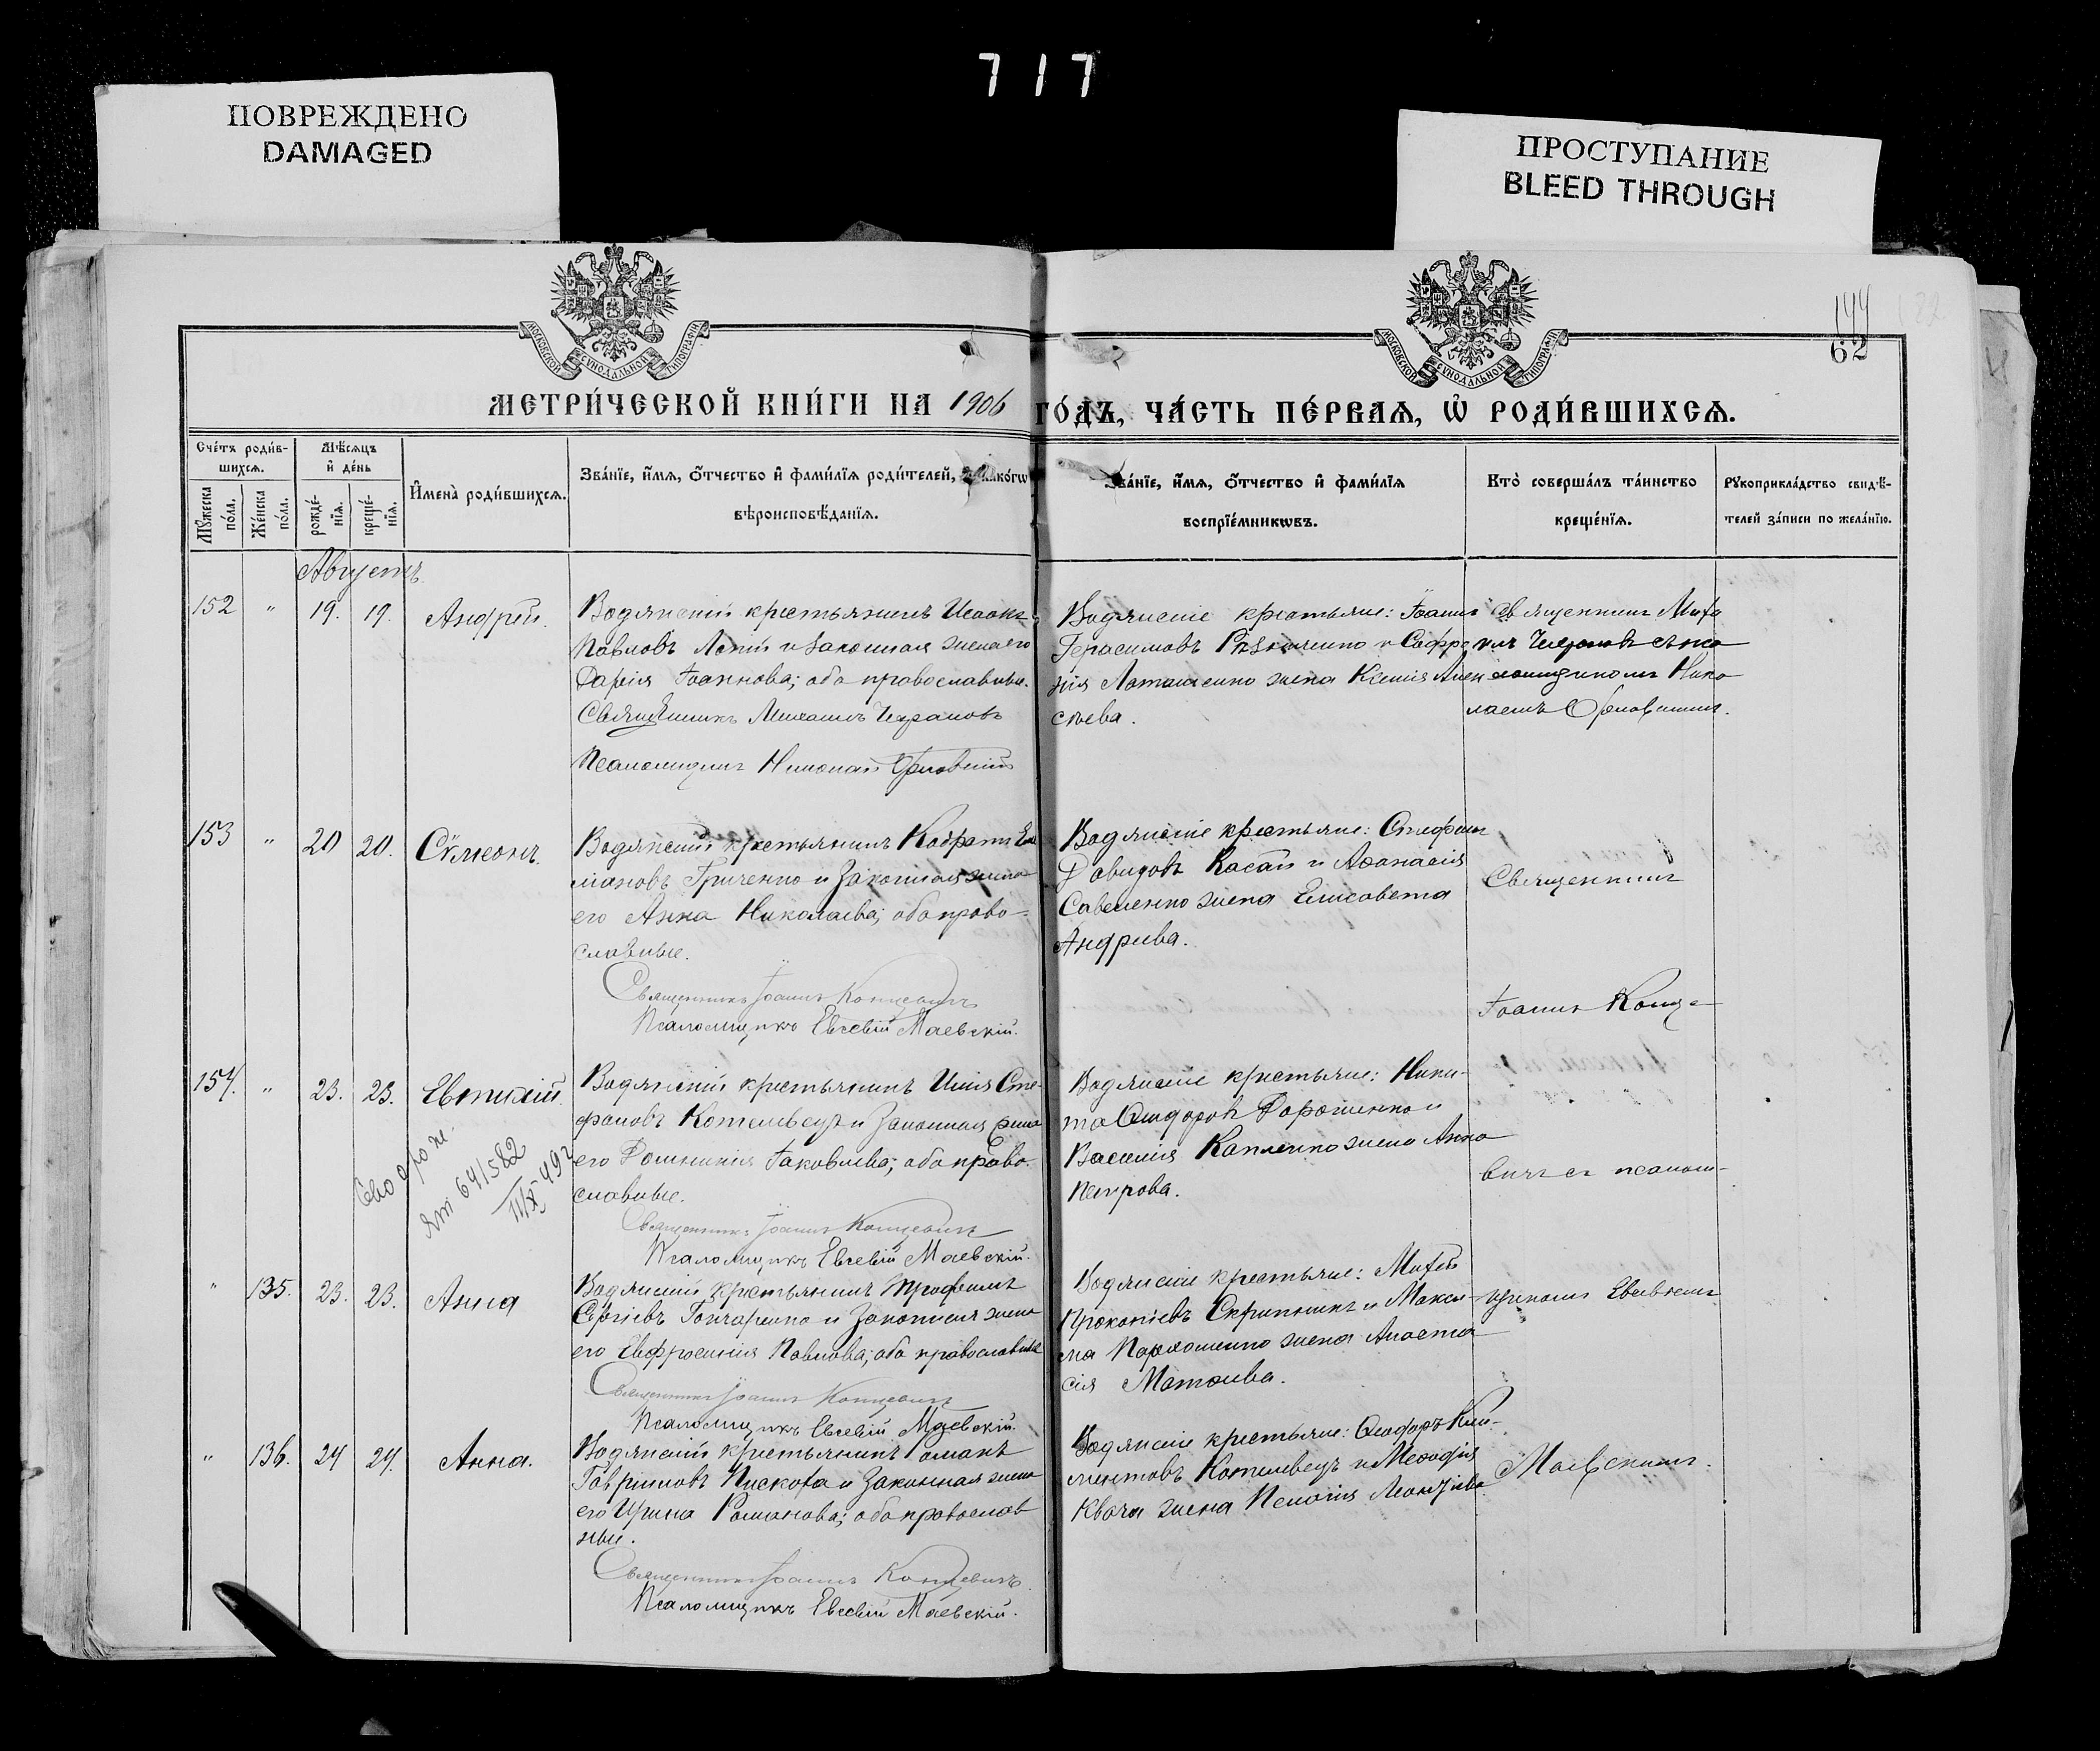 717
ПОВРЕЖДЕНО
DAMAGED
ПРОСТУПАНИЕ
BLEED THROUGH
МОСКОВСКОЙ СѴНОДАЛЬНОЙ ТИПОГРАФІИ
МОСКОВСКОЙ СѴНОДАЛЬНОЙ ТИПОГРАФІИ
62
МЕТРИ́ЧЕСКОЙ КНИ́ГИ НА 1906 ГО́ДЪ, ЧА́СТЬ ПЕ́РВАѦ, Ѡ҆ РОДИ́ВШИХСѦ.
Сче́тъ роди́в-
шихсѧ.
Мꙋ́жеска по́ла.
Же́нска по́ла.
Мѣ́сѧцъ
и҆ де́нь
рожде́-
нїѧ.
креще́-
нїѧ.
И҆мена̀ роди́вшихсѧ.
Зва́нїе, и҆́мѧ, ѻ҆́тчество и҆ фами́лїѧ роди́телей, и҆ како́гѡ
вѣроисповѣ́данїѧ.
Зва́нїе, и҆́мѧ, ѻ҆́тчество и҆ фами́лїѧ
воспрїе́мникѡвъ.
Кто̀ соверша́лъ та́инство
креще́нїѧ.
Рꙋкоприкла́дство свидѣ́-
телей за́писи по жела́нїю.
Августъ
152 " 19. 19. Андрей.
Водянскій крестьянинъ Исаакъ
Павловъ и законная жена его
Дарія Іоаннова; оба православные.
Священникъ Михаилъ
Псаломщикъ Николай Орловскій
Водянскіе крестьяне: Іоаннъ
Герасимовъ и Софро
нія жена Ксенія Алек
сѣева.
Священникъ Миха
илъ съ пса
ломщикомъ Нико
лаемъ Орловскимъ.
153 " 20 20. Сѵмеонъ.
Водянскій крестьянинъ Кодратъ Ем
ліановъ Гриченко и законная жена
его Анна Николаева; оба право-
славные.
Священникъ Іоаннъ Концевичъ
Псаломщикъ Евсевій Маевскій.
Водянскіе крестьяне: Стефанъ
Давидовъ Касай и Аѳанасія
Савеленко жена Елисавета
Андреева.
Священникъ
Іоаннъ Конце-
154. " 23. 23. Евтихій.
Водянскій крестьянинъ Илія Сте-
фановъ Котелевецъ и законная жена
его Домникія Іаковлева; оба право-
славные.
Священникъ Іоаннъ Концевичъ
Псаломщикъ Евсевій Маевскій.
Водянскіе крестьяне: Ники-
та Ѳеодоровъ Дорошенко и
Василія Капленко жена Анна
Петрова.
вичъ съ псалом-
641582
" 135. 23. 23. Анна
Водянскій крестьянинъ Трофимъ
Сергіевъ Гончаренко и законная жена
его Евфросинія Павлова; оба православные
Священникъ Іоаннъ Концевичъ
Псаломщикъ Евсевій Маевскій.
Водянскіе крестьяне:
Прокопіевъ Скрипникъ и Макси-
ма Пархоменко жена Анаста
сія Матѳіева.
щикомъ Евсевіемъ
" 136. 24 24. Анна.
Водянскій крестьянинъ Романъ
Гавріиловъ Пискора и законная жена
его Ирина Романова; оба православ
ные.
Священникъ Іоаннъ Концевичъ
Псаломщикъ Евсевій Маевскій.
Водянскіе крестьяне: Ѳеодоръ Кли-
ментовъ Котелевецъ и Меѳодія
Квача жена Пелагія Леонтіева.
Маевскимъ.